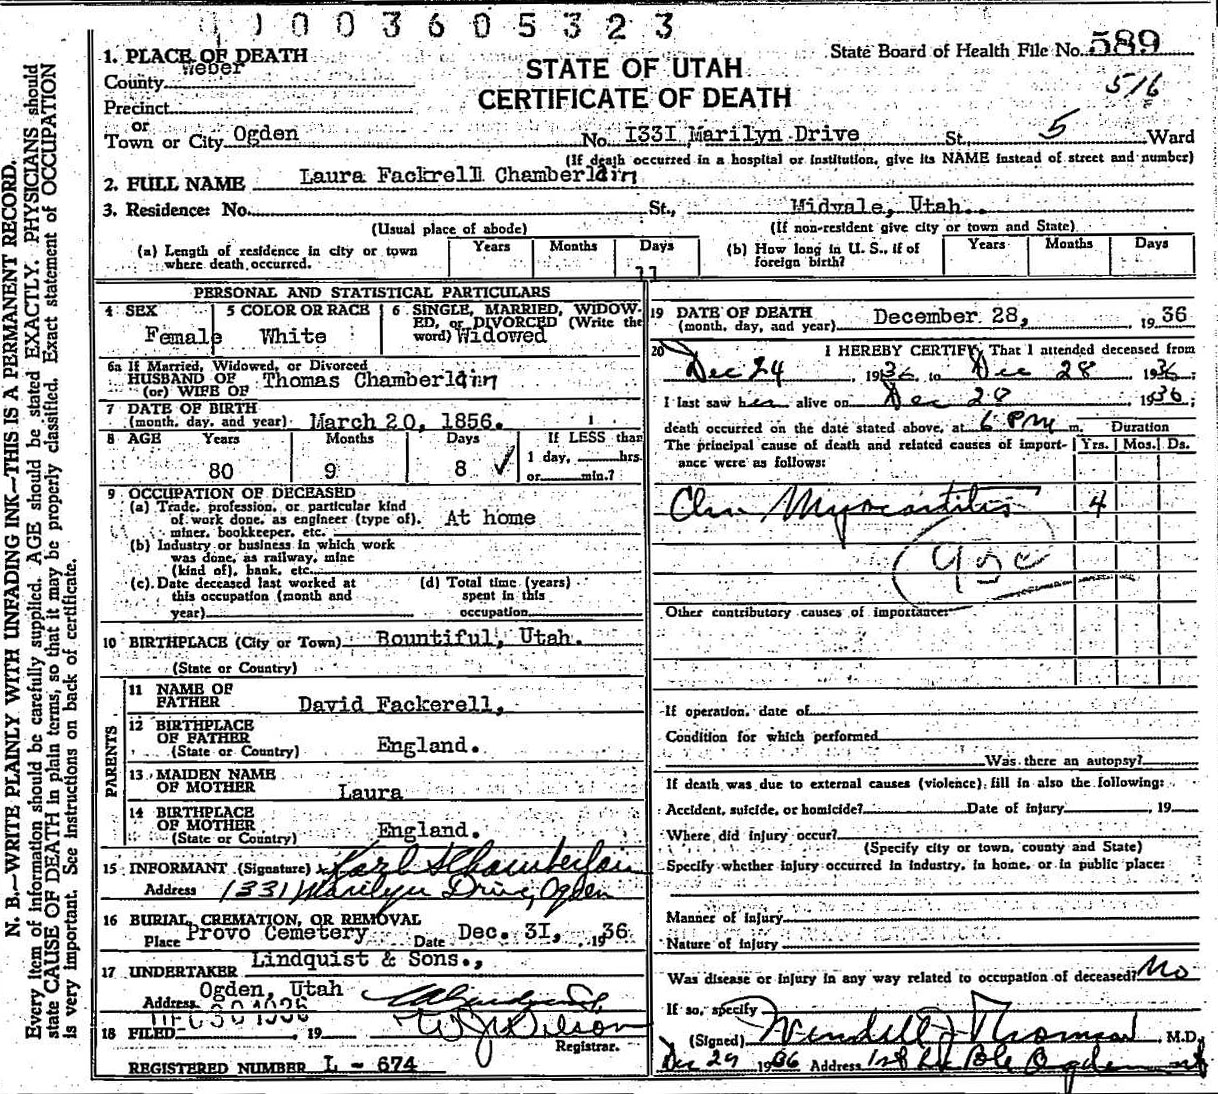 1003605323
State Board of Health File No. 589
516
1. PLACE OF DEATH
STATE OF UTAH
CERTIFICATE OF DEATH
County Weber
Precinct
or
Town or City Ogden No. 1331 Marilyn Drive St. 5 Ward
(If death occurred in a hospital or institution, give its NAME instead of street and number)
2. FULL NAME Laura Fackrell Chamberlain
3. Residence: No. St., Midvale, Utah.
(Usual place of abode) (If non-resident give city or town and State)
(a) Length of residence in city or town where death occurred. Years Months Days 11
(b) How long in U. S., if of foreign birth? Years Months Days
PERSONAL AND STATISTICAL PARTICULARS
4 SEX Female
5 COLOR OR RACE White
6 SINGLE, MARRIED, WIDOWED, or DIVORCED (Write the word) Widowed
6a If Married, Widowed, or Divorced
HUSBAND OF
(or) WIFE OF Thomas Chamberlain
7 DATE OF BIRTH
(month, day, and year) March 20, 1856.
8 AGE Years Months Days If LESS than
80 9 8 1 day, hrs.
or min.?
9 OCCUPATION OF DECEASED
(a) Trade, profession, or particular kind
of work done, as engineer (type of),
miner, bookkeeper, etc. At home
(b) Industry or business in which work
was done, as railway, mine
(kind of), bank, etc.
(c) Date deceased last worked at
this occupation (month and
year)
(d) Total time (years)
spent in this
occupation
10 BIRTHPLACE (City or Town) Bountiful, Utah.
(State or Country)
PARENTS
11 NAME OF
FATHER David Fackerell,
12 BIRTHPLACE
OF FATHER
(State or Country) England.
13 MAIDEN NAME
OF MOTHER Laura
14 BIRTHPLACE
OF MOTHER
(State or Country) England.
15 INFORMANT (Signature) Karl S Chamberlain
Address 1331 Marilyn Drive, Ogden
16 BURIAL, CREMATION, OR REMOVAL
Place Provo Cemetery Date Dec. 31, 1936
17 UNDERTAKER Lindquist & Sons.,
Address Ogden, Utah
DEC 30 1936
18 FILED , 19 W J Wilson
Registrar.
REGISTERED NUMBER L - 674
19 DATE OF DEATH
(month, day, and year) December 28, , 1936
20 I HEREBY CERTIFY, That I attended deceased from
Dec 24 , 1936, to Dec 28 1936;
I last saw her alive on Dec 28 , 1936,
death occurred on the date stated above, at 6 PM m. Duration
The principal cause of death and related causes of importance were as follows: Yrs. Mos. Ds.
Chr Myocarditis 4
Other contributory causes of importance:
If operation, date of
Condition for which performed
Was there an autopsy?
If death was due to external causes (violence) fill in also the following:
Accident, suicide, or homicide? Date of injury , 19
Where did injury occur?
(Specify city or town, county and State)
Specify whether injury occurred in industry, in home, or in public place:
Manner of Injury
Nature of injury
Was disease or injury in any way related to occupation of deceased? No
If so, specify
(Signed) Wendell J Thomson , M.D.
Dec 29 1936 Address Ogden
N. B.—WRITE PLAINLY WITH UNFADING INK—THIS IS A PERMANENT RECORD.
Every item of information should be carefully supplied. AGE should be stated EXACTLY. PHYSICIANS should
state CAUSE OF DEATH in plain terms, so that it may be properly classified. Exact statement of OCCUPATION
is very important. See instructions on back of certificate.